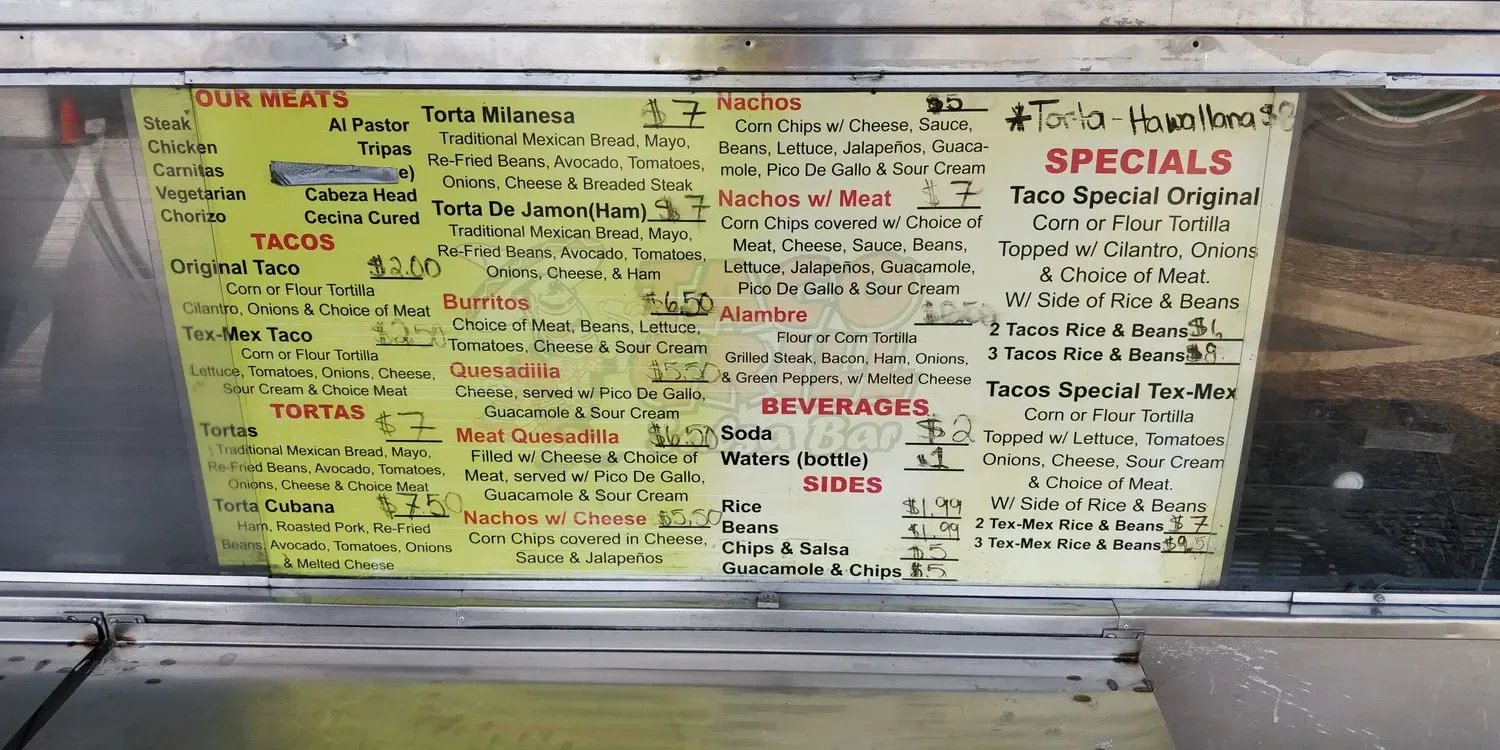 OUR MEATS
Steak
Chicken
Carnitas
Vegetarian
Chorizo
Al Pastor
Tripas
e)
Cabeza Head
Cecina Cured
TACOS
Original Taco $2.00
Corn or Flour Tortilla
Cilantro, Onions & Choice of Meat
Tex-Mex Taco $2.50
Corn or Flour Tortilla
Lettuce, Tomatoes, Onions, Cheese,
Sour Cream & Choice Meat
TORTAS
Tortas $7
Traditional Mexican Bread, Mayo,
Re-Fried Beans, Avocado, Tomatoes,
Onions, Cheese & Choice Meat
Torta Cubana $7.50
Ham, Roasted Pork, Re-Fried
Beans, Avocado, Tomatoes, Onions
& Melted Cheese
Torta Milanesa $7
Traditional Mexican Bread, Mayo,
Re-Fried Beans, Avocado, Tomatoes,
Onions, Cheese & Breaded Steak
Torta De Jamon(Ham) $7
Traditional Mexican Bread, Mayo,
Re-Fried Beans, Avocado, Tomatoes,
Onions, Cheese, & Ham
Burritos $6.50
Choice of Meat, Beans, Lettuce,
Tomatoes, Cheese & Sour Cream
Quesadilla $5.50
Cheese, served w/ Pico De Gallo,
Guacamole & Sour Cream
Meat Quesadilla $6.50
Filled w/ Cheese & Choice of
Meat, served w/ Pico De Gallo,
Guacamole & Sour Cream
Nachos w/ Cheese $5.50
Corn Chips covered in Cheese,
Sauce & Jalapeños
Nachos $5
Corn Chips w/ Cheese, Sauce,
Beans, Lettuce, Jalapeños, Guaca-
mole, Pico De Gallo & Sour Cream
Nachos w/ Meat $7
Corn Chips covered w/ Choice of
Meat, Cheese, Sauce, Beans,
Lettuce, Jalapeños, Guacamole,
Pico De Gallo & Sour Cream
Alambre
Flour or Corn Tortilla
Grilled Steak, Bacon, Ham, Onions,
& Green Peppers, w/ Melted Cheese
BEVERAGES
Soda $2
Waters (bottle) $1
SIDES
Rice $1.99
Beans $1.99
Chips & Salsa $5
Guacamole & Chips $5
*Torta - Hawallana $8
SPECIALS
Taco Special Original
Corn or Flour Tortilla
Topped w/ Cilantro, Onions
& Choice of Meat.
W/ Side of Rice & Beans
2 Tacos Rice & Beans $6
3 Tacos Rice & Beans $8
Tacos Special Tex-Mex
Corn or Flour Tortilla
Topped w/ Lettuce, Tomatoes
Onions, Cheese, Sour Cream
& Choice of Meat.
W/ Side of Rice & Beans
2 Tex-Mex Rice & Beans $7
3 Tex-Mex Rice & Beans
TACO
GRILL
Bar